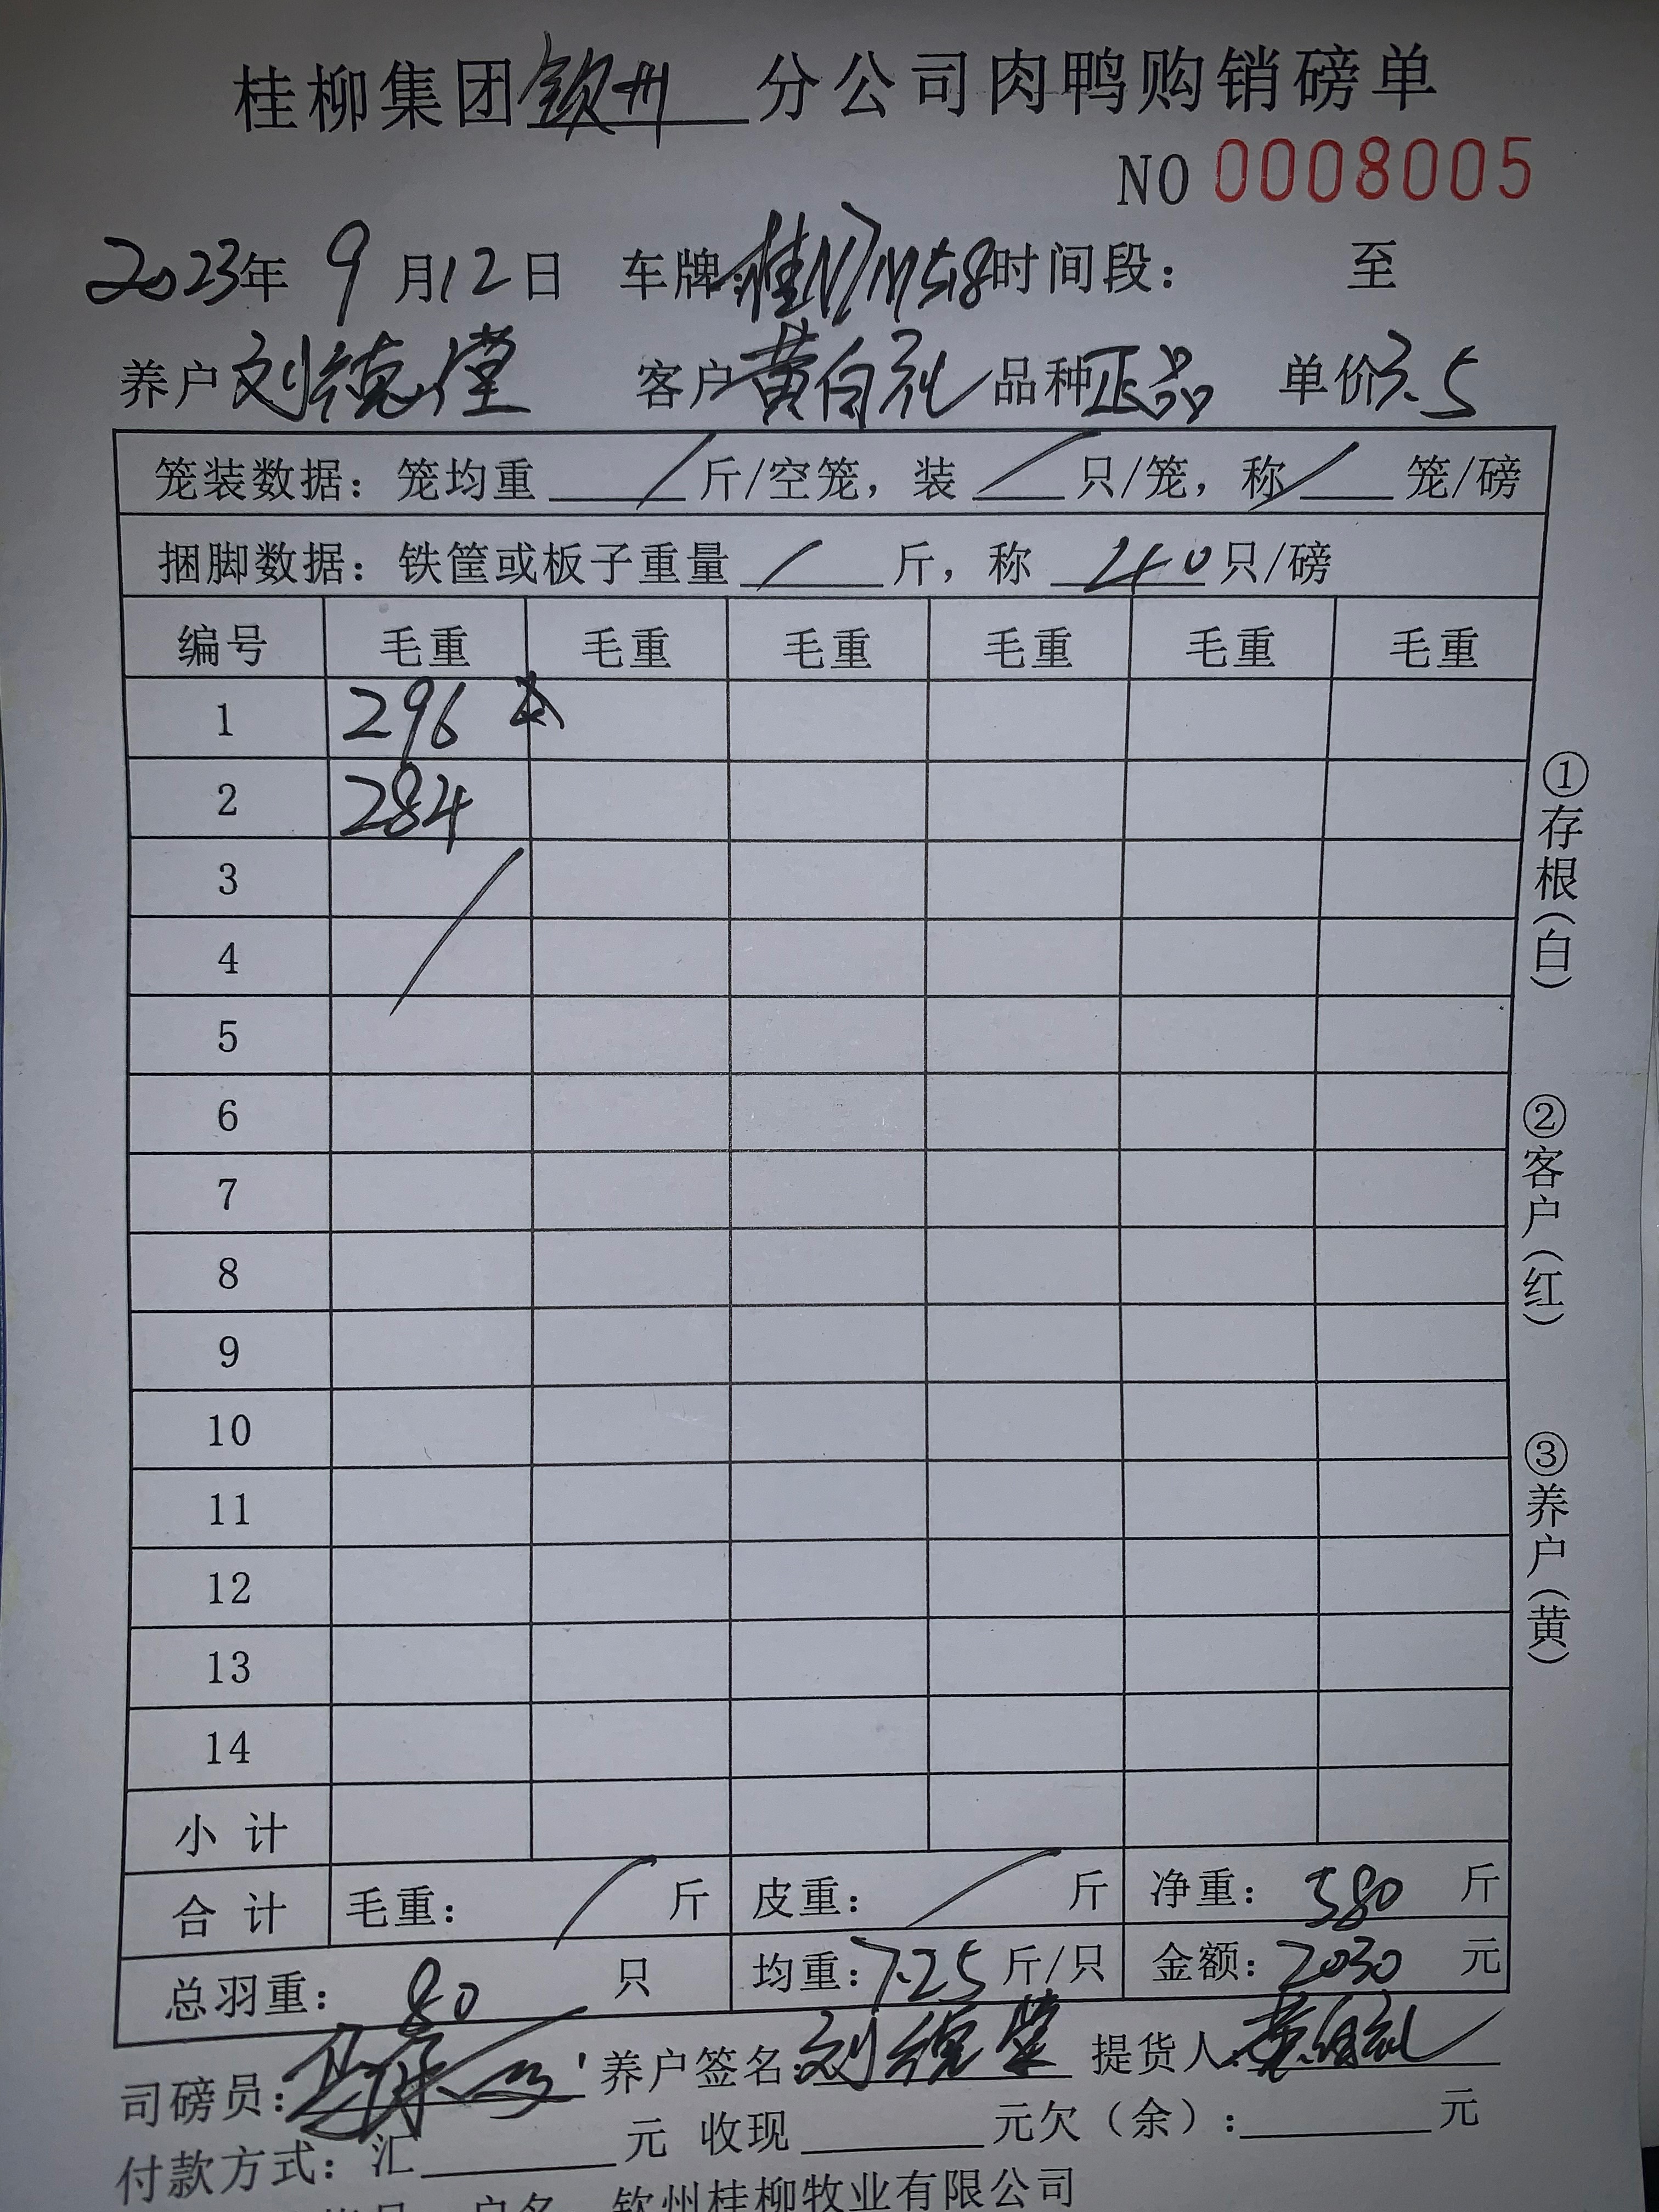 桂柳集团钦州分公司肉鸭购销磅单
NO 0008005
2023年 9月12日 车牌:桂N7M518时间段: 至
养户刘德 客户黄白礼 品种正品 单价3.5
笼装数据: 笼均重 / 斤/空笼, 装 / 只/笼, 称 / 笼/磅
捆脚数据: 铁筐或板子重量 / 斤, 称 40只/磅
编号 毛重 毛重 毛重 毛重 毛重 毛重
1 296
2 284
3 /
4
5
6
7
8
9
10
11
12
13
14
小 计
合 计 毛重: / 斤 皮重: / 斤 净重: 580 斤
总羽重: 80 只 均重:7.25斤/只 金额:2030 元
司磅员: 养户签名:刘德 提货人:
付款方式: 汇 元 收现 元欠(余): 元
户名 钦州桂柳牧业有限公司
①存根(白)
②客户(红)
③养户(黄)